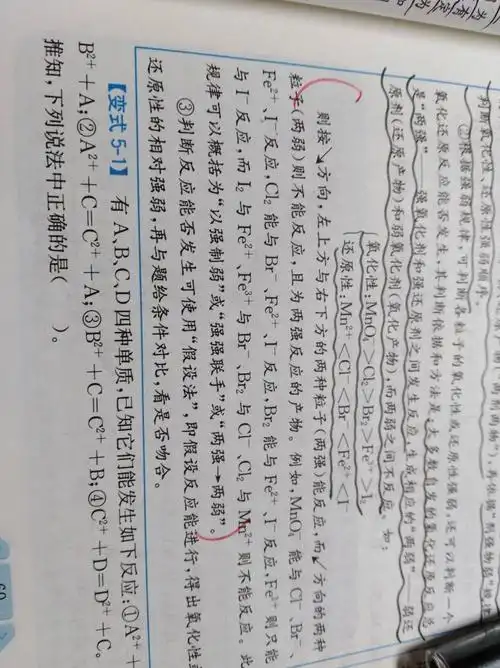 判断氧化性、还原性强弱顺序。
②根据强弱规律,可判断各粒子的氧化性或还原性强弱,还可以判断一个
氧化还原反应能否发生,其判断依据和方法是:大多数自发的氧化还原反应总
是“两强”——强氧化剂和强还原剂之间发生反应,生成相应的“两弱”——弱还
原剂(还原产物)和弱氧化剂(氧化产物),而两弱之间不反应。如:
氧化性:MnO₄⁻>Cl₂>Br₂>Fe³⁺>I₂
还原性:Mn²⁺<Cl⁻<Br⁻<Fe²⁺<I⁻
则按↘方向,左上方与右下方的两种粒子(两强)能反应,而↙方向的两种
粒子(两弱)则不能反应,且为两强反应的产物。例如,MnO₄⁻能与Cl⁻、Br⁻、
Fe²⁺、I⁻反应,Cl₂能与Br⁻、Fe²⁺、I⁻反应,Br₂能与Fe²⁺、I⁻反应,Fe³⁺则只能
与I⁻反应,而I₂与Fe²⁺、Fe³⁺与Br⁻、Br₂与Cl⁻、Cl₂与Mn²⁺则不能反应。此
规律可以概括为“以强制弱”或“强强联手”或“两强→两弱”。
③判断反应能否发生可使用“假设法”,即假设反应能进行,得出氧化性
还原性的相对强弱,再与题给条件对比,看是否吻合。
【变式5-1】 有A、B、C、D四种单质,已知它们能发生如下反应:①A²⁺+
B²⁺+A;②A²⁺+C=C²⁺+A;③B²⁺+C=C²⁺+B;④C²⁺+D=D²⁺+C。
推知,下列说法中正确的是( )。